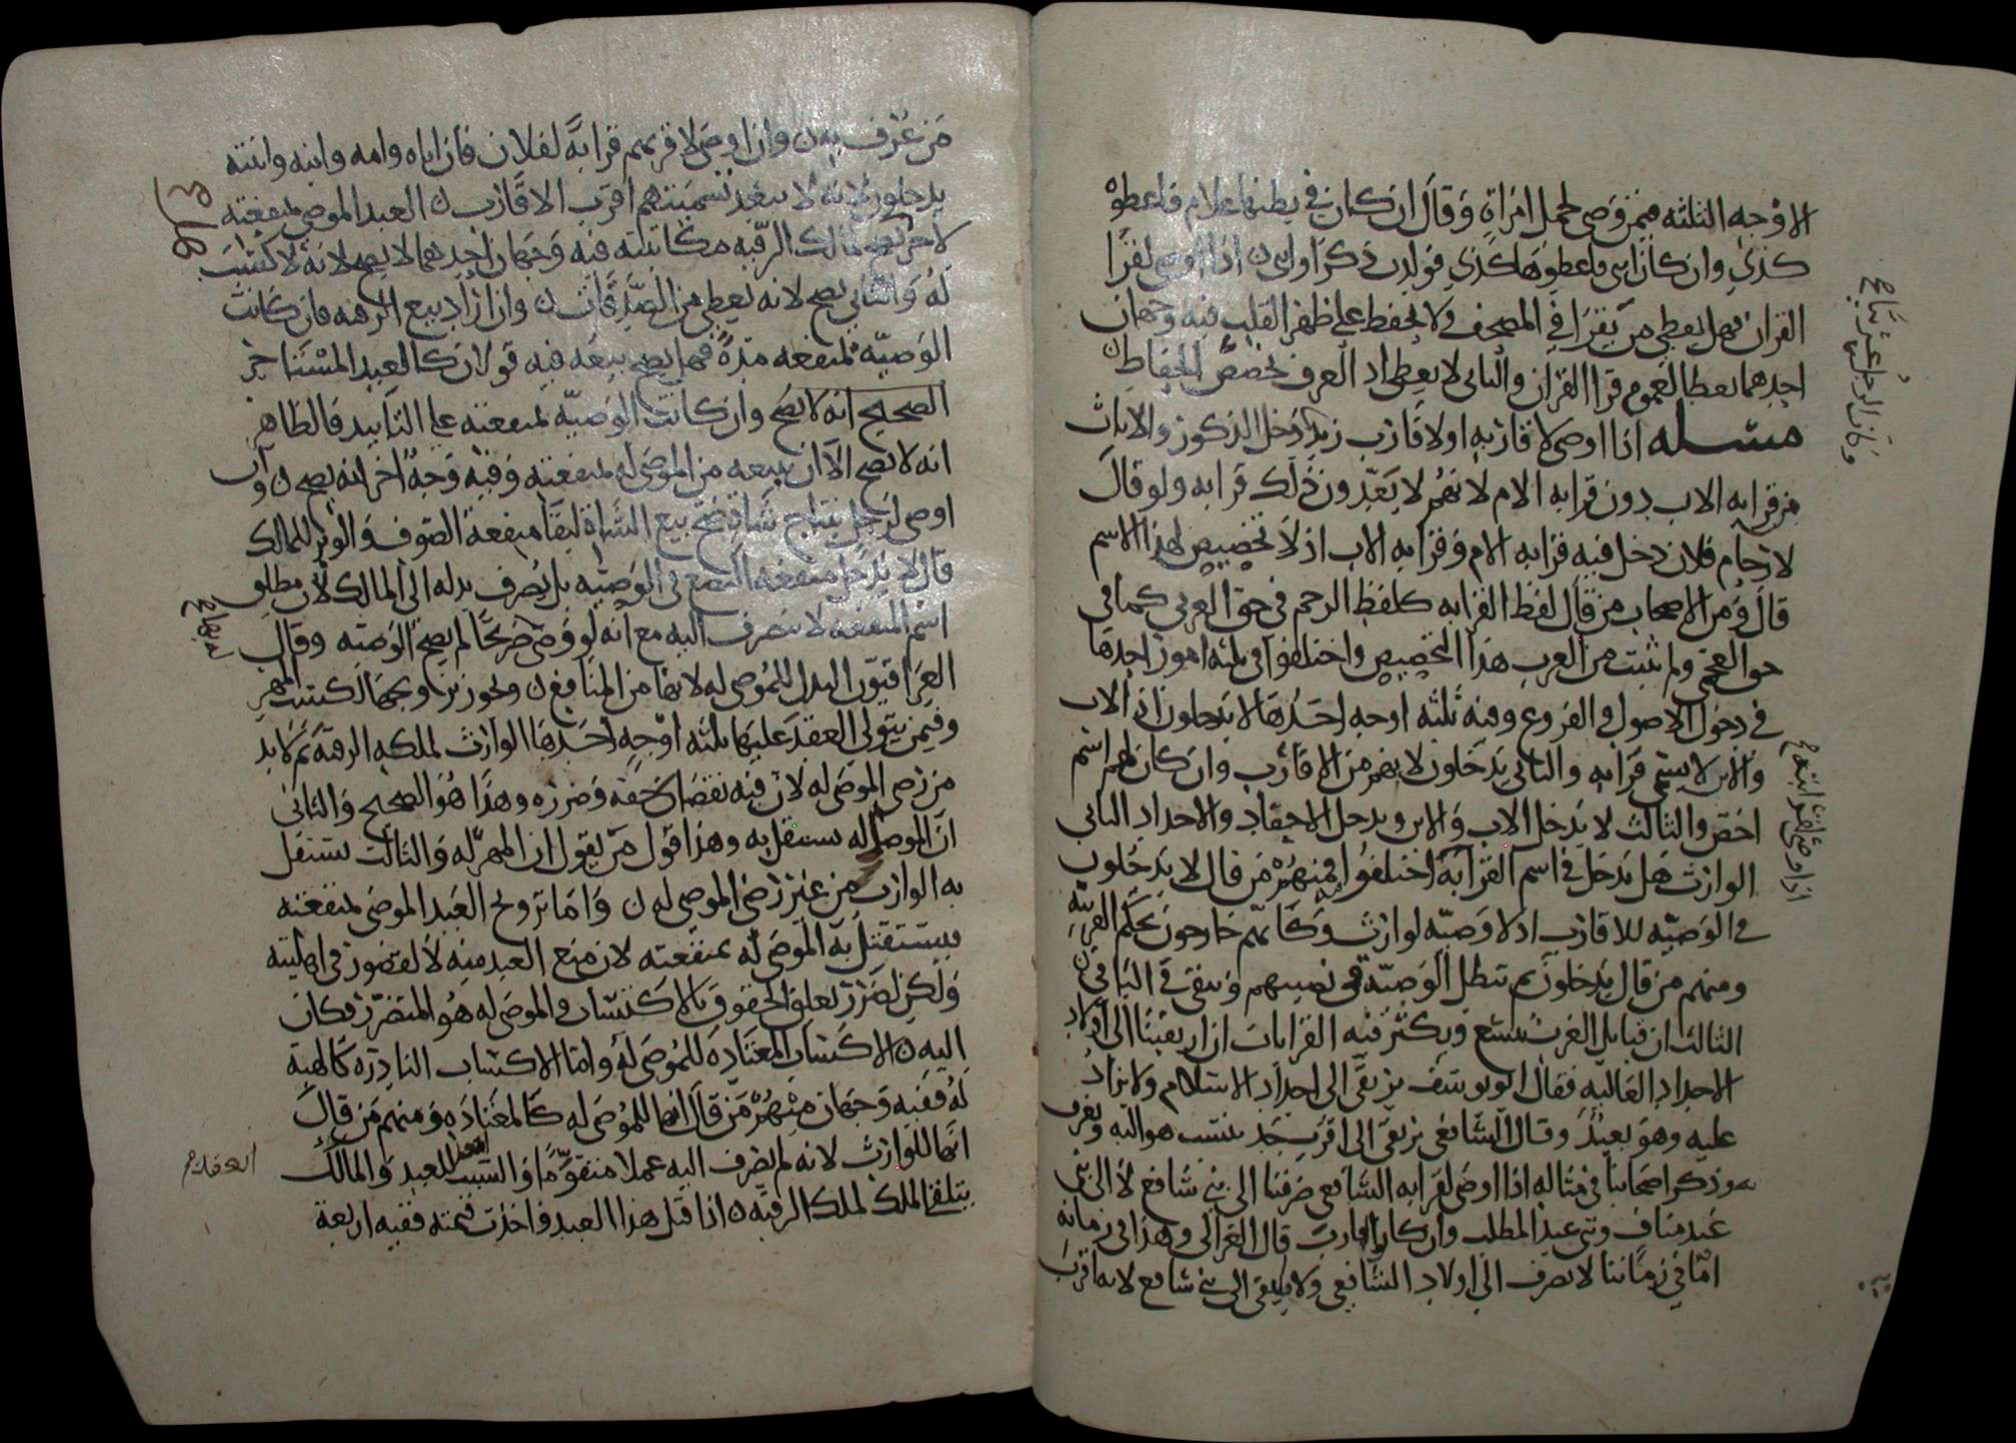 الاوجه الثلثه فيمن وصى لحمل امراة وقال ان كان في بطنها غلام فاعطوه
كذي وان كان انثى فاعطوها كذي فولدت ذكرا وانثى ن اذا اوصى لقرا
القران فهل يعطى من يقرا في المصحف ولا يحفظ على ظهر القلب فيه وجهان
احدهما يعطا لعموم قرا القران والثاني لا يعطى اذ العرف يخصص الحفاظ ن
مسله اذا اوصى لاقاربه او لاقارب زيد دخل الذكور والاناث
من قرابه الاب دون قرابه الام لانهم لا يعدون ذلك قرابه ولو قال
لارحام فلان دخل فيه قرابه الام وقرابه الاب اذ لا تخصيص لهذا الاسم
قال ومن الاصحاب من قال لفظ القرابه كلفظ الرحم في حق العربي كما في
حق العجمي ولم يثبت من العرب هذا التخصيص واختلفوا في ثلثه امور احدها
في دخول الاصول والفروع وفيه ثلثه اوجه احدها لا يدخلون اذ الاب
والابن لا يسمى قرابه والثاني يدخلون لانهم من الاقارب وان كان لهم اسم
اخص والثالث لا يدخل الاب والابن ويدخل الاحفاد والاجداد الثاني
الوارث هل يدخل في اسم القرابة اختلفوا فمنهم من قال لا يدخلون
في الوصيه للاقارب اذ لا وصيه لوارث وكانهم خارجون بحكم القرينه
ومنهم من قال يدخلون ثم تبطل الوصيه في نصيبهم وتبقى في الباقي ن
الثالث ان قبايل العرب تتسع ويكثر فيه القرابات ان ارتقينا الى اولاد
الاجداد العاليه فقال ابو يوسف يرتقى الى اجداد الاسلام ولا يزاد
عليه وهو بعيد وقال الشافعي يرتقى الى اقرب جد ينتسب هو اليه ويعرف
به وذكر اصحابنا في مثاله اذا اوصى لقرابه الشافعي صرفنا الى بني شافع لا الى بني
عبد مناف وبني عبد المطلب وان كانوا اقارب قال الغزالي وهذا في زمانه
اما في زماننا لا يصرف الى اولاد الشافعي ولا يرتقى الى بني شافع لانه اقرب
اذا اوصى لاقرب
من عرف به ن وان اوصى لاقربهم قرابة لفلان فان اباه وامه وابنه وابنته
يدخلون لانه لا يبعد تسميتهم اقرب الاقارب ن العبد الموصى بمنفعته
لاخر لمالك الرقبه مكاتبته فيه وجهان احدهما لا يصح لانه لا كسب
له والثاني يصح لانه يعطى من الصدقات ن وان اراد بيع الرقبه فان كانت
الوصيه بمنفعه مدة فهل يصح بيعه فيه قولان كالعبد المستاجر
الصحيح انه لا يصح وان كانت الوصيه بمنفعته على التابيد فالظاهر
انه لا يصح الا ان يبيعه من الموصى له بمنفعته وفيه وجه اخر انه يصح ن وان
اوصى لرجل بنتاج شاة صح بيع الشاة لبقا منفعة الصوف والوبر للمالك
قال لا يدخل منفعة البضع في الوصيه بل يصرف بدله الى المالك لان مطلق
اسم المنفعه لا ينصرف اليه مع انه لو وصى صريحا لم يصح الوصيه وقال
العراقيون البدل للموصى له لانها من المنافع ن ويجوز تزويجها لكسب المهر
وفيمن يتولى العقد عليها ثلثه اوجه احدها الوارث لملكه الرقبة ثم لا بد
من رضى الموصى له لان فيه نقصان حقه وضرره وهذا هو الصحيح والثاني
ان الموصى له يستقل به وهذا قول من يقول ان المهر له والثالث يستقل
به الوارث من غير رضى الموصى له ن واما تزويج العبد الموصى بمنفعته
فيستقل به الموصى له بمنفعته لان منع العبد منه لا لقصور في اهليته
ولكن لضرر تعلق الحقوق بالاكتساب والموصى له هو المتضرر فكان
اليه ن الاكتساب المعتاده للموصى له واما الاكتساب النادره كالهبه
له ففيه وجهان منهم من قال انها للموصى له كالمعتاده ومنهم من قال
انها للوارث لانه لم يصرف اليه عملا متقوما والسبب للعبد والمالك
يتلقى الملك لملك الرقبه ن اذا قتل هذا العبد واخذت قيمته ففيه اربعة